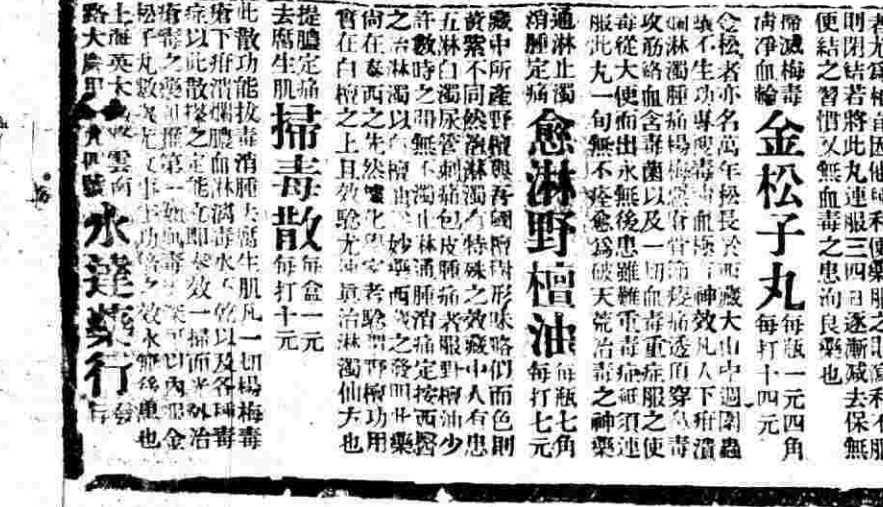 則閉結若將此丸連服三四日逐漸减去保無
便結之習慣又無血毒之患洵良藥也
掃滅梅毒
清淨血輪
金松子丸
每瓶一元四角
每打十四元
金松者亦名萬年松長於西藏大山中週圍蟲
不生功專 毒 血 神效凡人下疳潰
爛淋濁腫痛楊梅 瘡 痛透頂穿 毒
攻筋絡血含毒菌以及一切血毒重症服之使
毒從大便而出永無後患雖難重毒症 須連
服此丸一旬無不痊愈爲破天荒治毒之神藥
通淋止濁
消腫定痛
愈淋野檀油
每瓶七角
每打七元
藏中所產野檀與吾國檀樹形味略們而色則
黃紫不同然治淋濁有特殊之效藏中人有患
五淋白濁尿管刺痛包皮腫痛者服野檀油少
許數時之間無不濁止淋通腫消痛定按西醫
之治淋濁以白檀油 妙藥西 之發明此藥
尚在泰西之先然 化學家考驗謂野檀功用
實在白檀之上且效驗尤 眞治淋濁仙方也
提膿定痛
去腐生肌
掃毒散
每盒一元
每打十元
此散功能拔毒消腫去腐生肌凡一切楊梅毒
瘡下疳潰爛膿血淋漓毒水 乾以及各種毒
症以此散搽之定能立卽奏效一掃而光外治
瘡毒之藥 推第一如血毒 可以內服金
松子丸數 尤收事半功倍之效水 後 也
上海英大 雲南
路大慶里 九四號
水達藥行